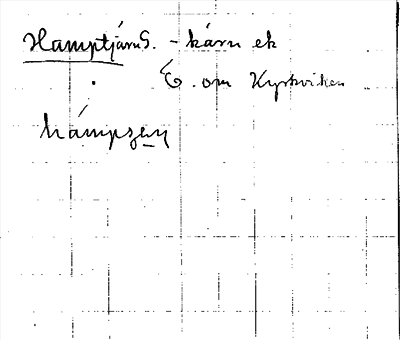 Hamptjärn S. - kärn ek
Ö. om Kyrkviken
hámpʒe̱ṉ